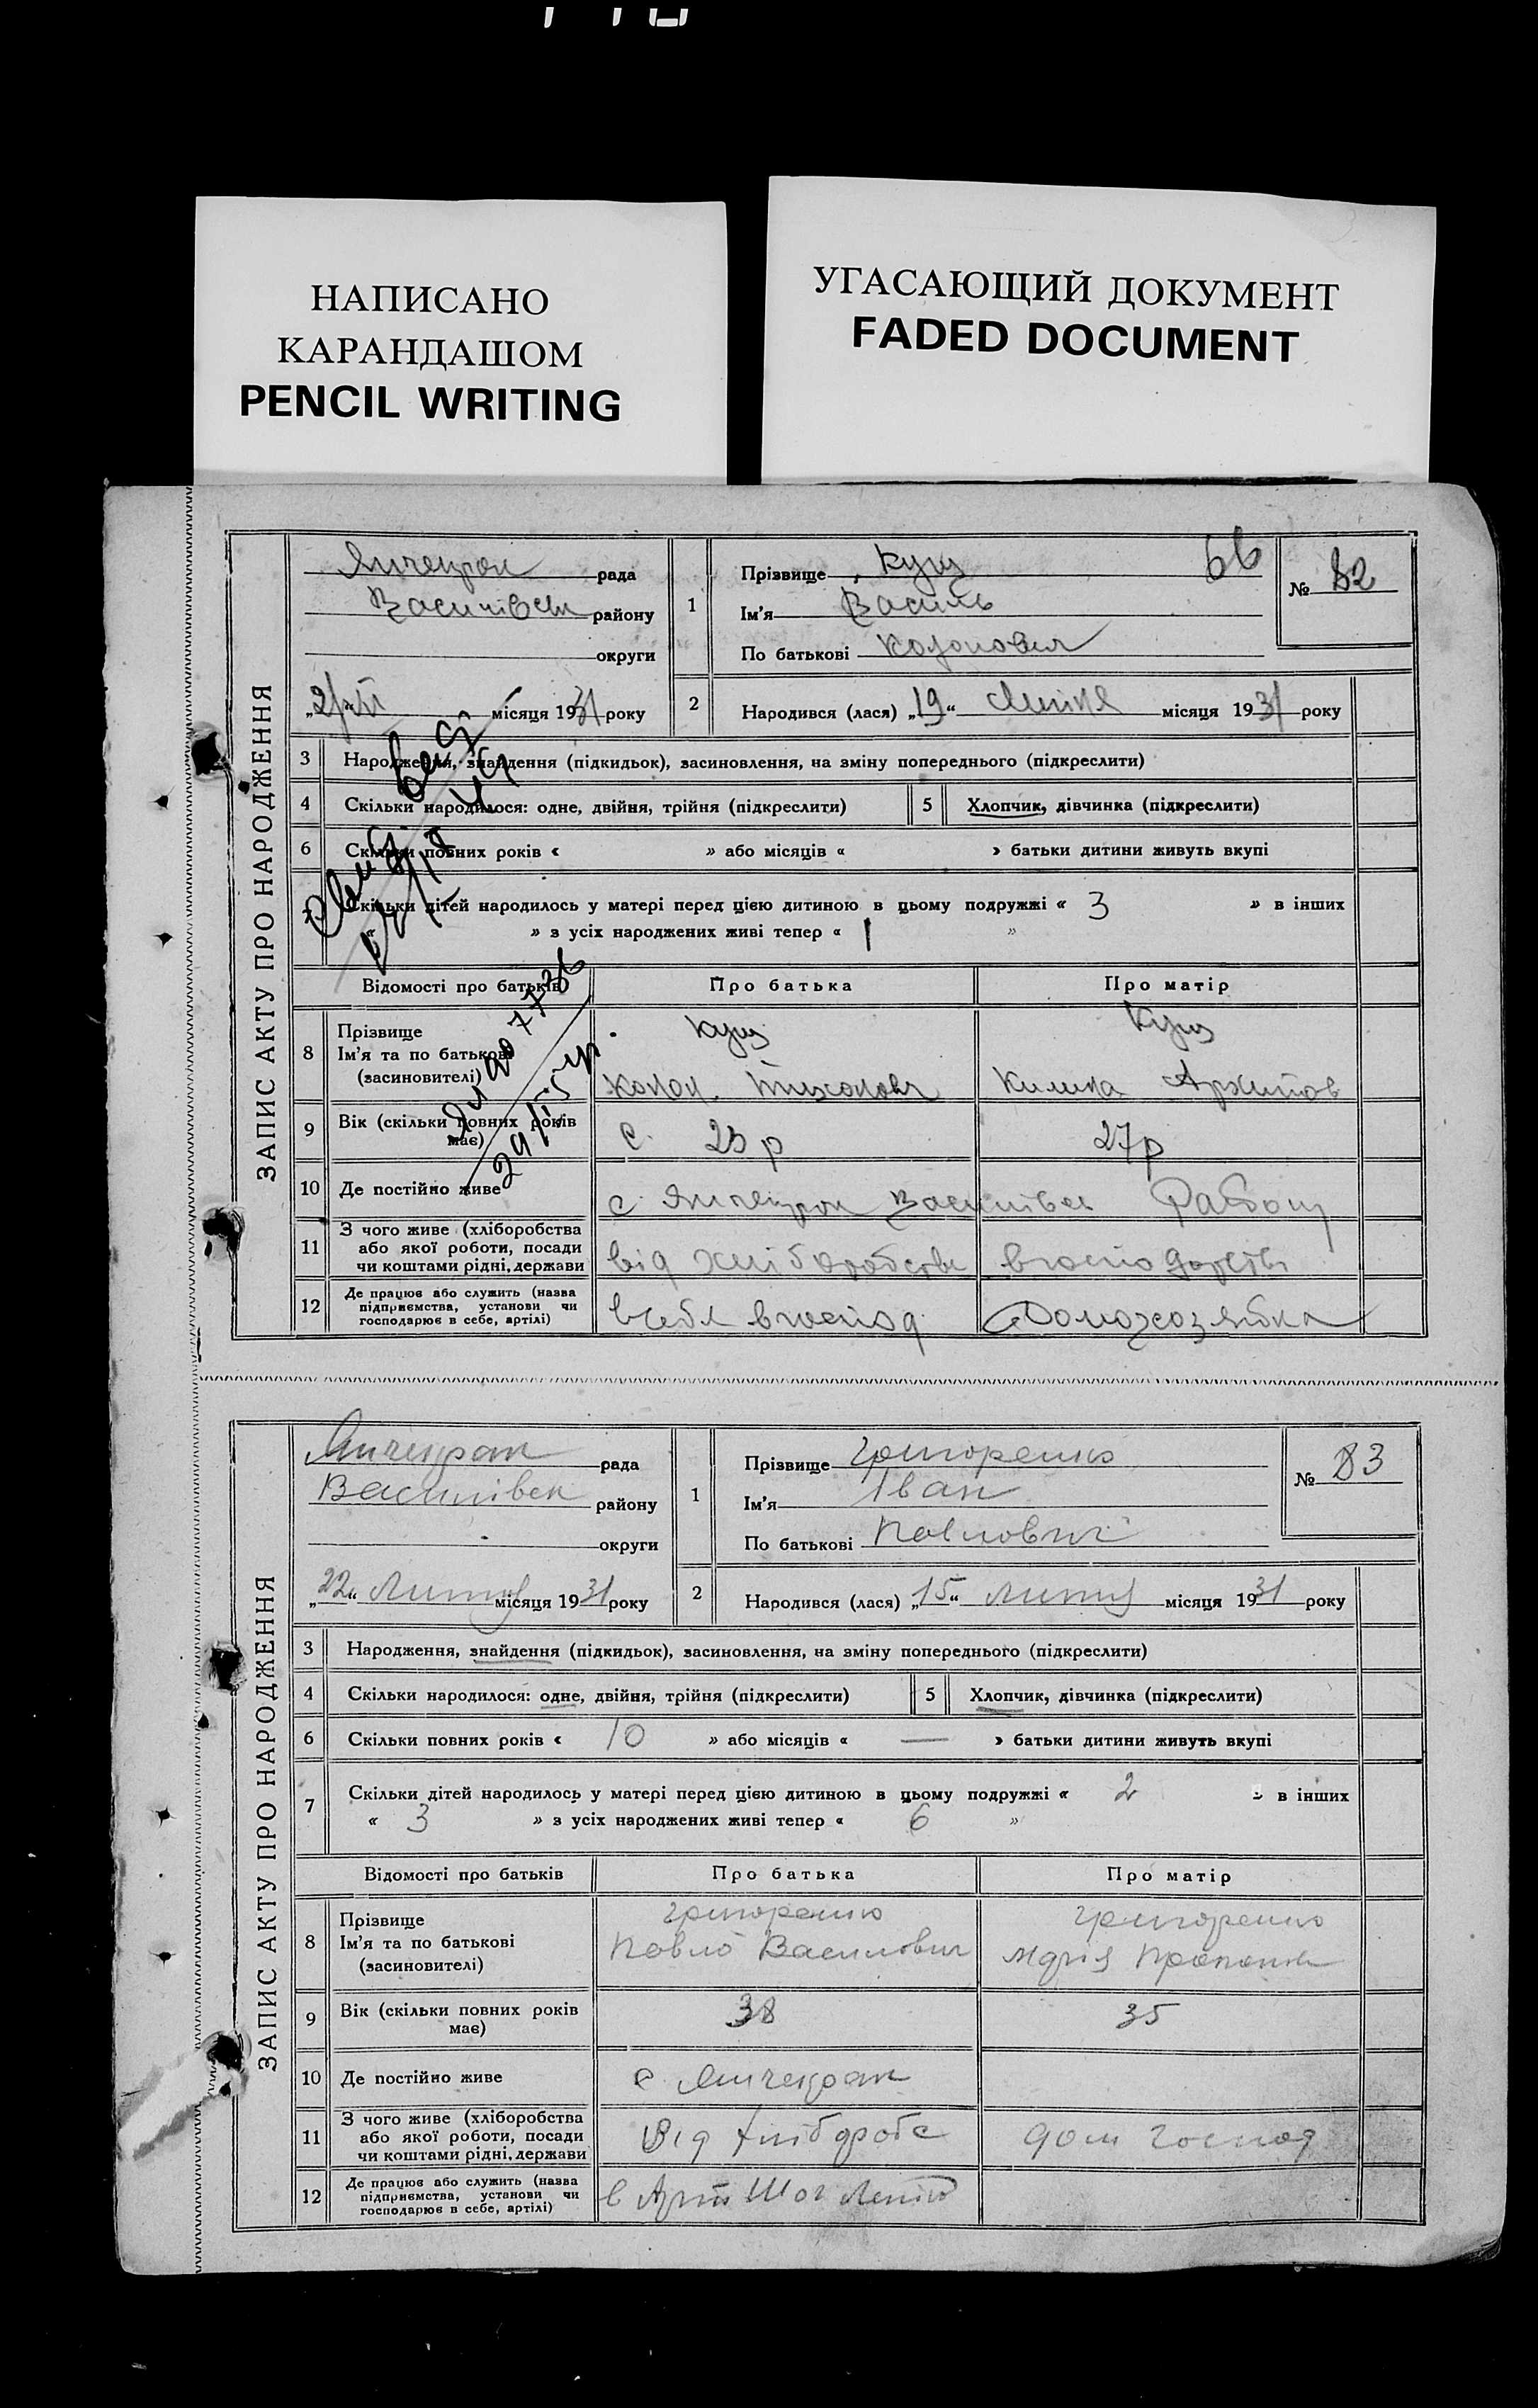 НАПИСАНО
КАРАНДАШОМ
PENCIL WRITING
УГАСАЮЩИЙ ДОКУМЕНТ
FADED DOCUMENT
ЗАПИС АКТУ ПРО НАРОДЖЕННЯ
Янчекрак рада
Василівськ району
округи
місяця 1931 року
1
Прізвище Кущ
66
Ім'я Василь
По батькові
№ 82
2
Народився (лася) „19“ Липня місяця 1931 року
3 Народження, знайдення (підкидьок), засиновлення, на зміну попереднього (підкреслити)
4 Скільки народилося: одне, двійня, трійня (підкреслити)
5 Хлопчик, дівчинка (підкреслити)
6 Скільки повних років « » або місяців « » батьки дитини живуть вкупі
7 Скільки дітей народилось у матері перед цією дитиною в цьому подружжі « 3 » в інших
« » з усіх народжених живі тепер « 1 »
Відомості про батьків Про батька Про матір
8 Прізвище
Ім'я та по батькові
(засиновителі)
Кущ
Кущ
Архипов
9 Вік (скільки повних років
має)
27 р
10 Де постійно живе
с Янчекрак Василівськ Району
11 З чого живе (хліборобства
або якої роботи, посади
чи коштами рідні, держави
від хліборобства
в господарстві
12 Де працює або служить (назва
підприємства, установи чи
господарює в себе, артілі)
в себе в господ
Домохозяйка
ЗАПИС АКТУ ПРО НАРОДЖЕННЯ
Янчекрак рада
Василівськ району
округи
„22“ Липня місяця 1931 року
1
Прізвище Григоренко
Ім'я Іван
По батькові Павлович
№ 83
2
Народився (лася) „15“ Липня місяця 1931 року
3 Народження, знайдення (підкидьок), засиновлення, на зміну попереднього (підкреслити)
4 Скільки народилося: одне, двійня, трійня (підкреслити)
5 Хлопчик, дівчинка (підкреслити)
6 Скільки повних років « 10 » або місяців « — » батьки дитини живуть вкупі
7 Скільки дітей народилось у матері перед цією дитиною в цьому подружжі « 2 » в інших
« 3 » з усіх народжених живі тепер « 6 »
Відомості про батьків Про батька Про матір
8 Прізвище
Ім'я та по батькові
(засиновителі)
Григоренко
Павло Василович
Григоренко
Марія
9 Вік (скільки повних років
має)
38
35
10 Де постійно живе
с Янчекрак
11 З чого живе (хліборобства
або якої роботи, посади
чи коштами рідні, держави
Від хлібороб
дом господ
12 Де працює або служить (назва
підприємства, установи чи
господарює в себе, артілі)
в Арт